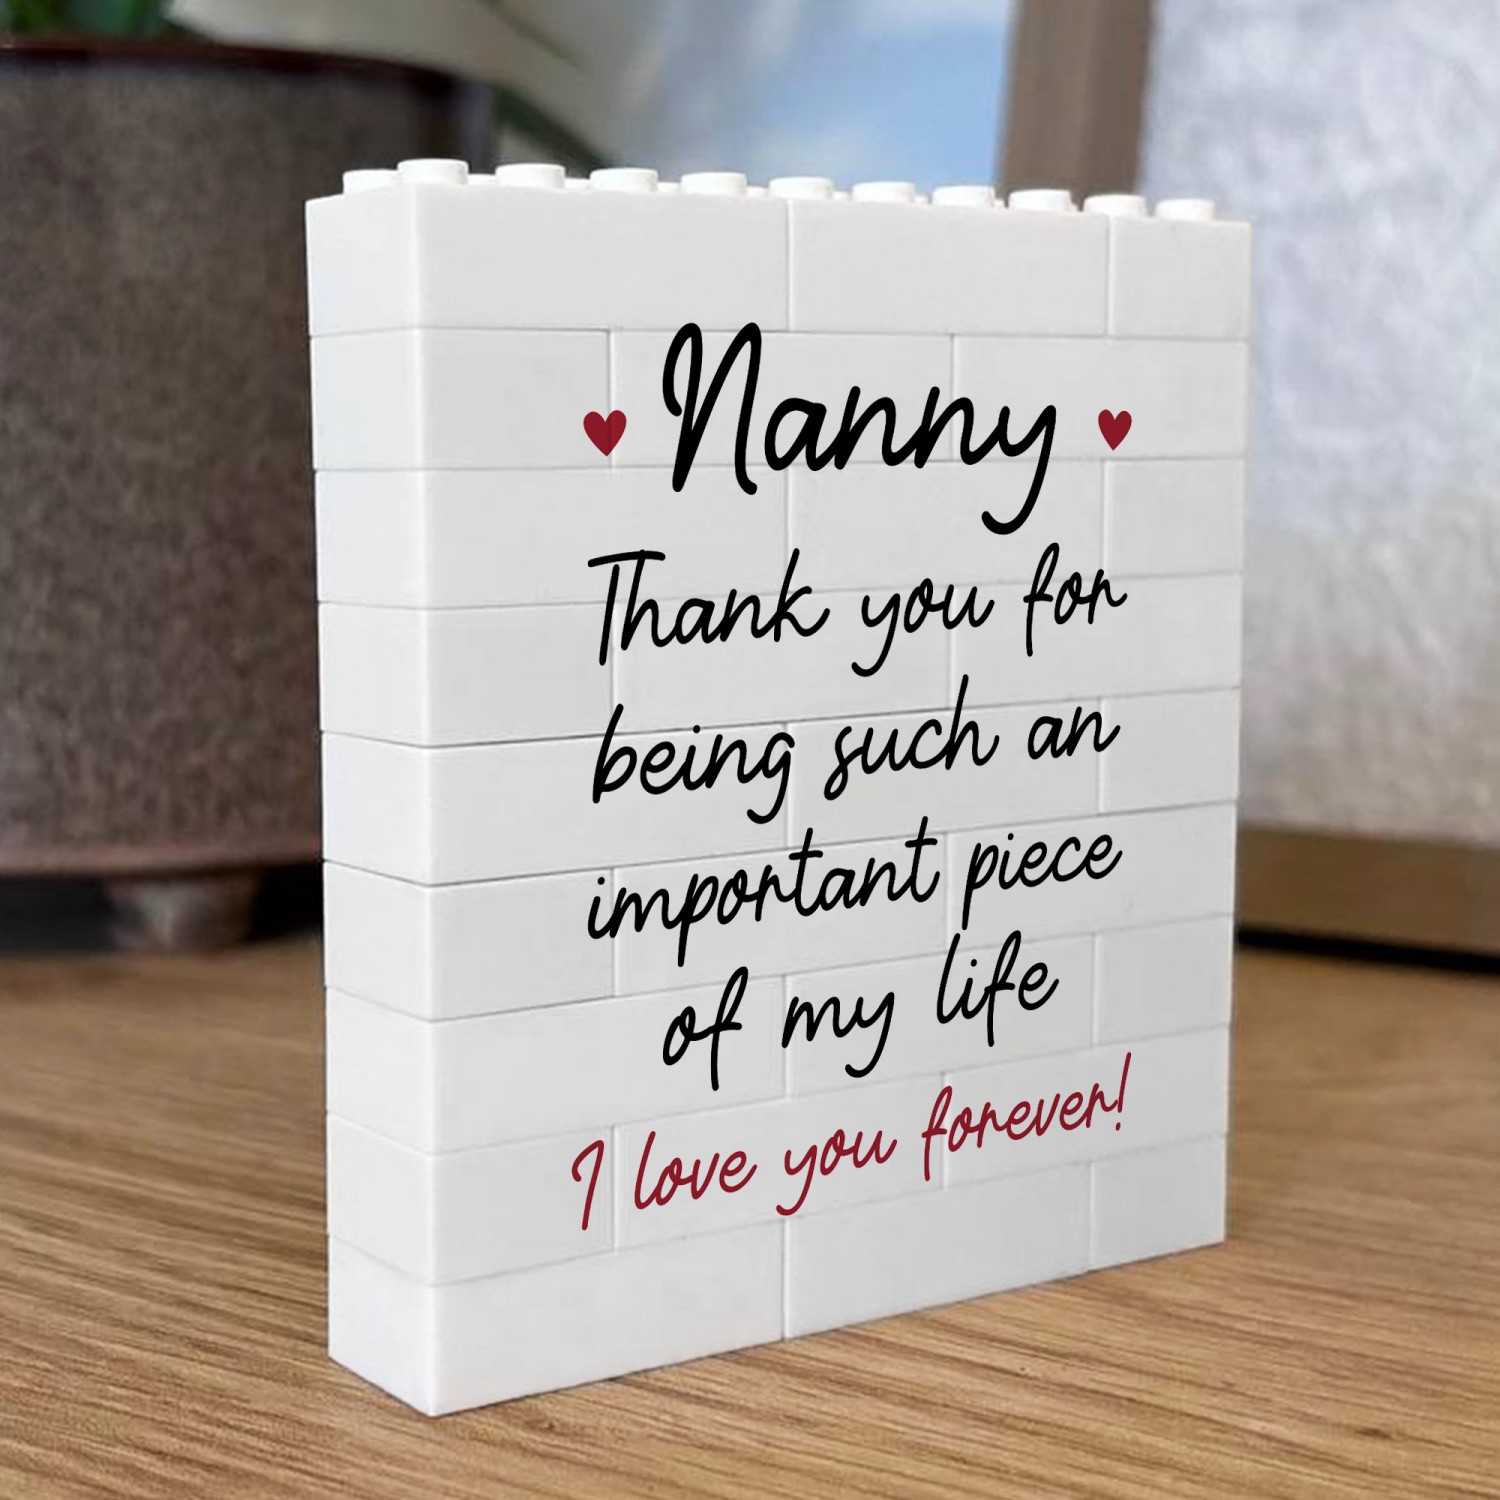 Nanny
Thank you for
being such an
important piece
of my life
I love you forever!